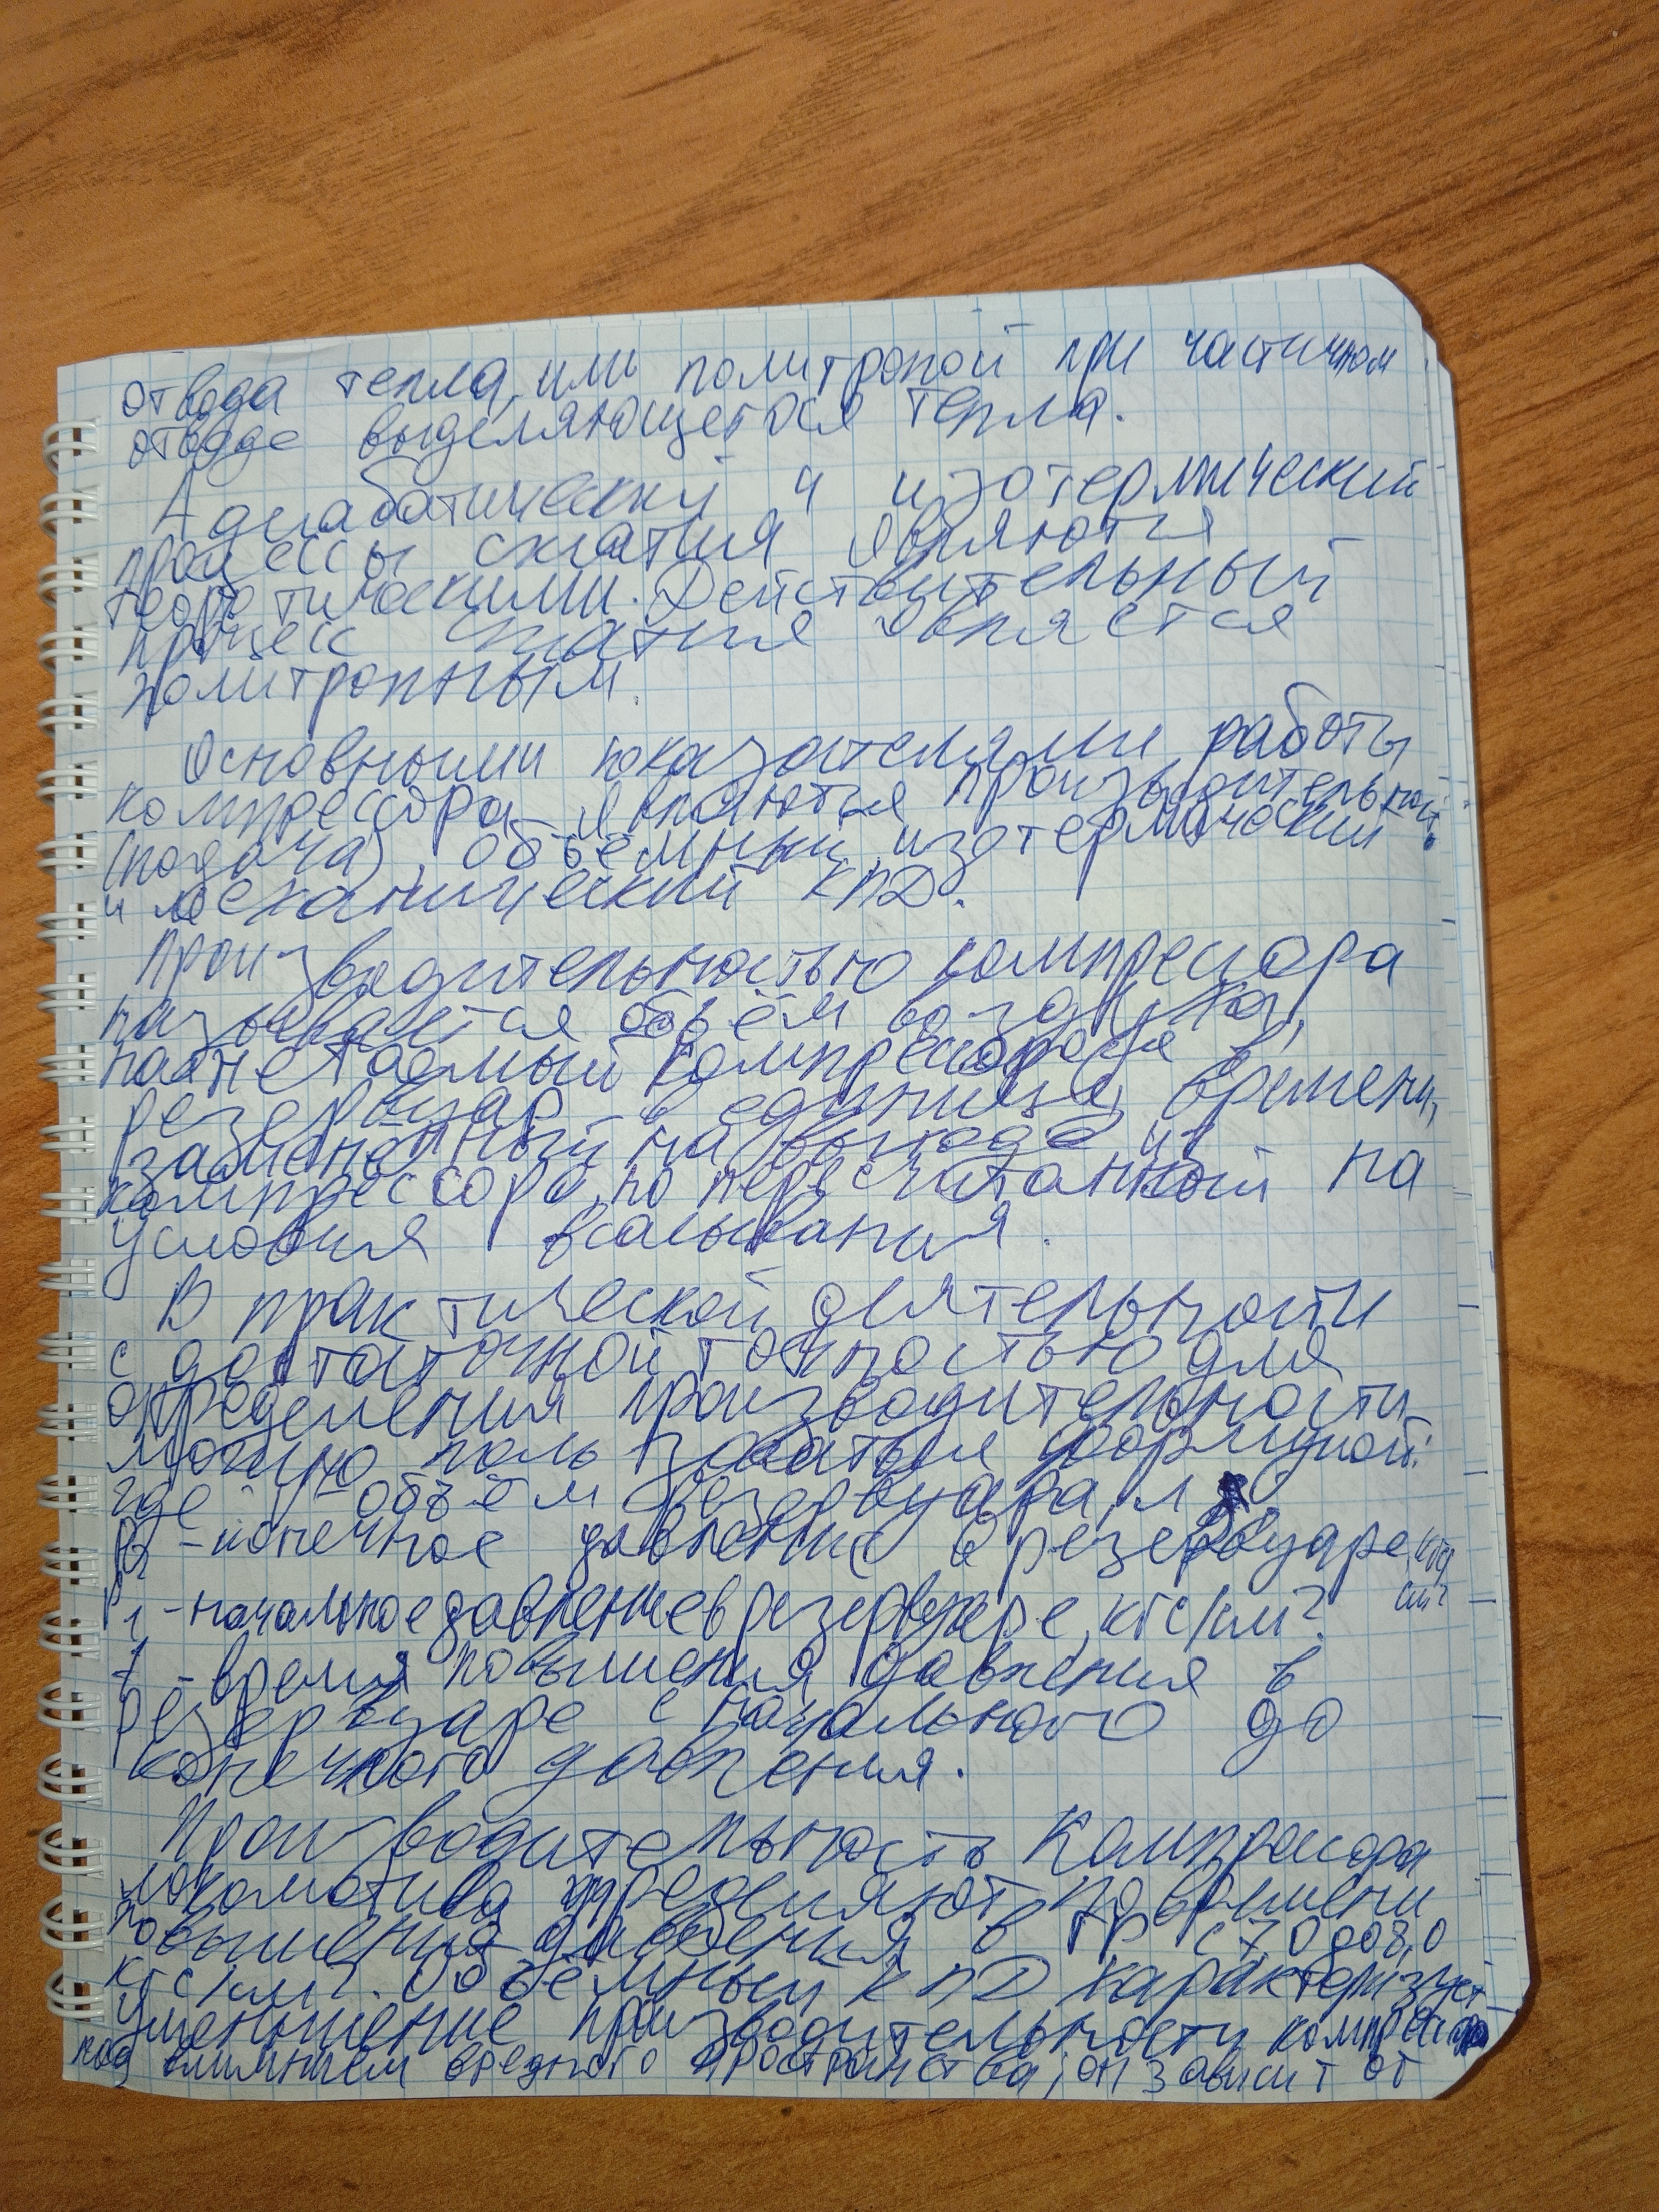 отвода тепла, или политропой при частичном
отводе выделяющегося тепла.
Адиабатический и изотермический
процессы сжатия являются
теоретическими. Действительный
процесс сжатия является
политропным.
Основными показателями работы
компрессора являются производительность
(подача), объёмный, изотермический
и механический КПД.
Производительностью компрессора
называется объём воздуха,
нагнетаемый компрессором в
резервуар в единицу времени,
замененный на выходе из
компрессора, но пересчитанный на
условия всасывания.
В практической деятельности
с достаточной точностью для
определения производительности
можно пользоваться формулой:
где V - объём резервуара, л
P2 - конечное давление в резервуаре, кгс/
см²
P1 - начальное давление в резервуаре, кгс/см².
t - время повышения давления в
резервуаре с начального до
конечного давления.
Производительность Компрессора
локомотива определяют по времени
повышения давления в ГР с 7,0 до 8,0
кгс/см². Объёмный КПД характеризует
уменьшение производительности компрессора
под влиянием вредного пространства; он зависит от